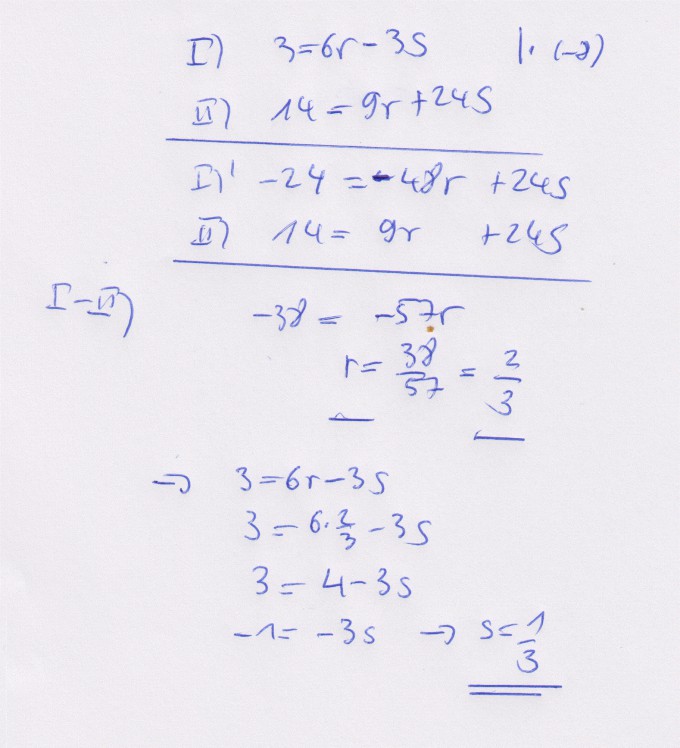 I) 3=6r-3s |·(-8)
II) 14=9r+24s
I)' -24 = -48r +24s
II) 14= 9r +24s
I-II) -38 = -57r
r= 38/57 = 2/3
→ 3=6r-3s
3=6·2/3-3s
3=4-3s
-1= -3s → s=1/3